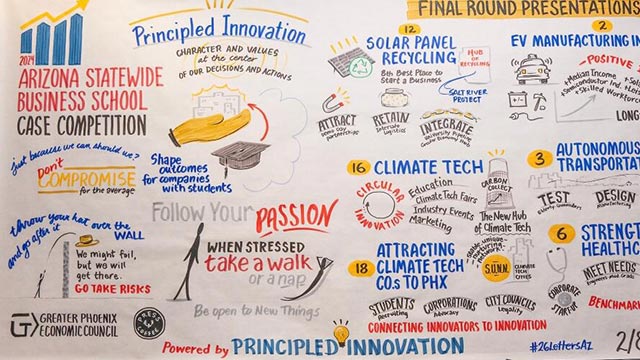 2024
ARIZONA STATEWIDE
BUSINESS SCHOOL
CASE COMPETITION
Principled Innovation
CHARACTER AND VALUES
at the center
OF OUR DECISIONS AND ACTIONS
just because we can should we?
Don't
COMPROMISE
for the average
Shape
outcomes
for companies
with students
throw your hat over the
WALL
and go after it
We might fail,
but we will
get there.
GO TAKE RISKS
Follow Your PASSION
WHEN STRESSED
take a walk
or a nap
Be open to New Things
GREATER PHOENIX
ECONOMIC COUNCIL
Powered by PRINCIPLED INNOVATION
FINAL ROUND PRESENTATIONS
12
SOLAR PANEL
RECYCLING
8th Best Place to
Start a Business
HUB
OF
RECYCLING
SALT RIVER
PROJECT
ATTRACT
partnerships
RETAIN
INTEGRATE
University Pipeline
2
EV MANUFACTURING IN
POSITIVE
+Median Income
+Semiconductor Ind.
+Skilled Workfor
LONG
16
CLIMATE TECH
CIRCULAR
INNOVATION
Education
Climate Tech Fairs
Industry Events
Marketing
CARBON
COLLECT
The New Hub
of Climate Tech
3
AUTONOMOUS
TRANSPORTA
TEST
DESIGN
18
ATTRACTING
CLIMATE TECH
COs TO PHX
S.U.N.N.
CLIMATE
TECH
CITIES
STUDENTS
Recruiting
CORPORATIONS
Advocacy
CITY COUNCILS
Legality
CORPORATE
STARTUP
CONNECTING INNOVATORS TO INNOVATION
6
STRENGT
HEALTHC
MEET NEEDS
BENCHMAR
#26LettersAZ
2/